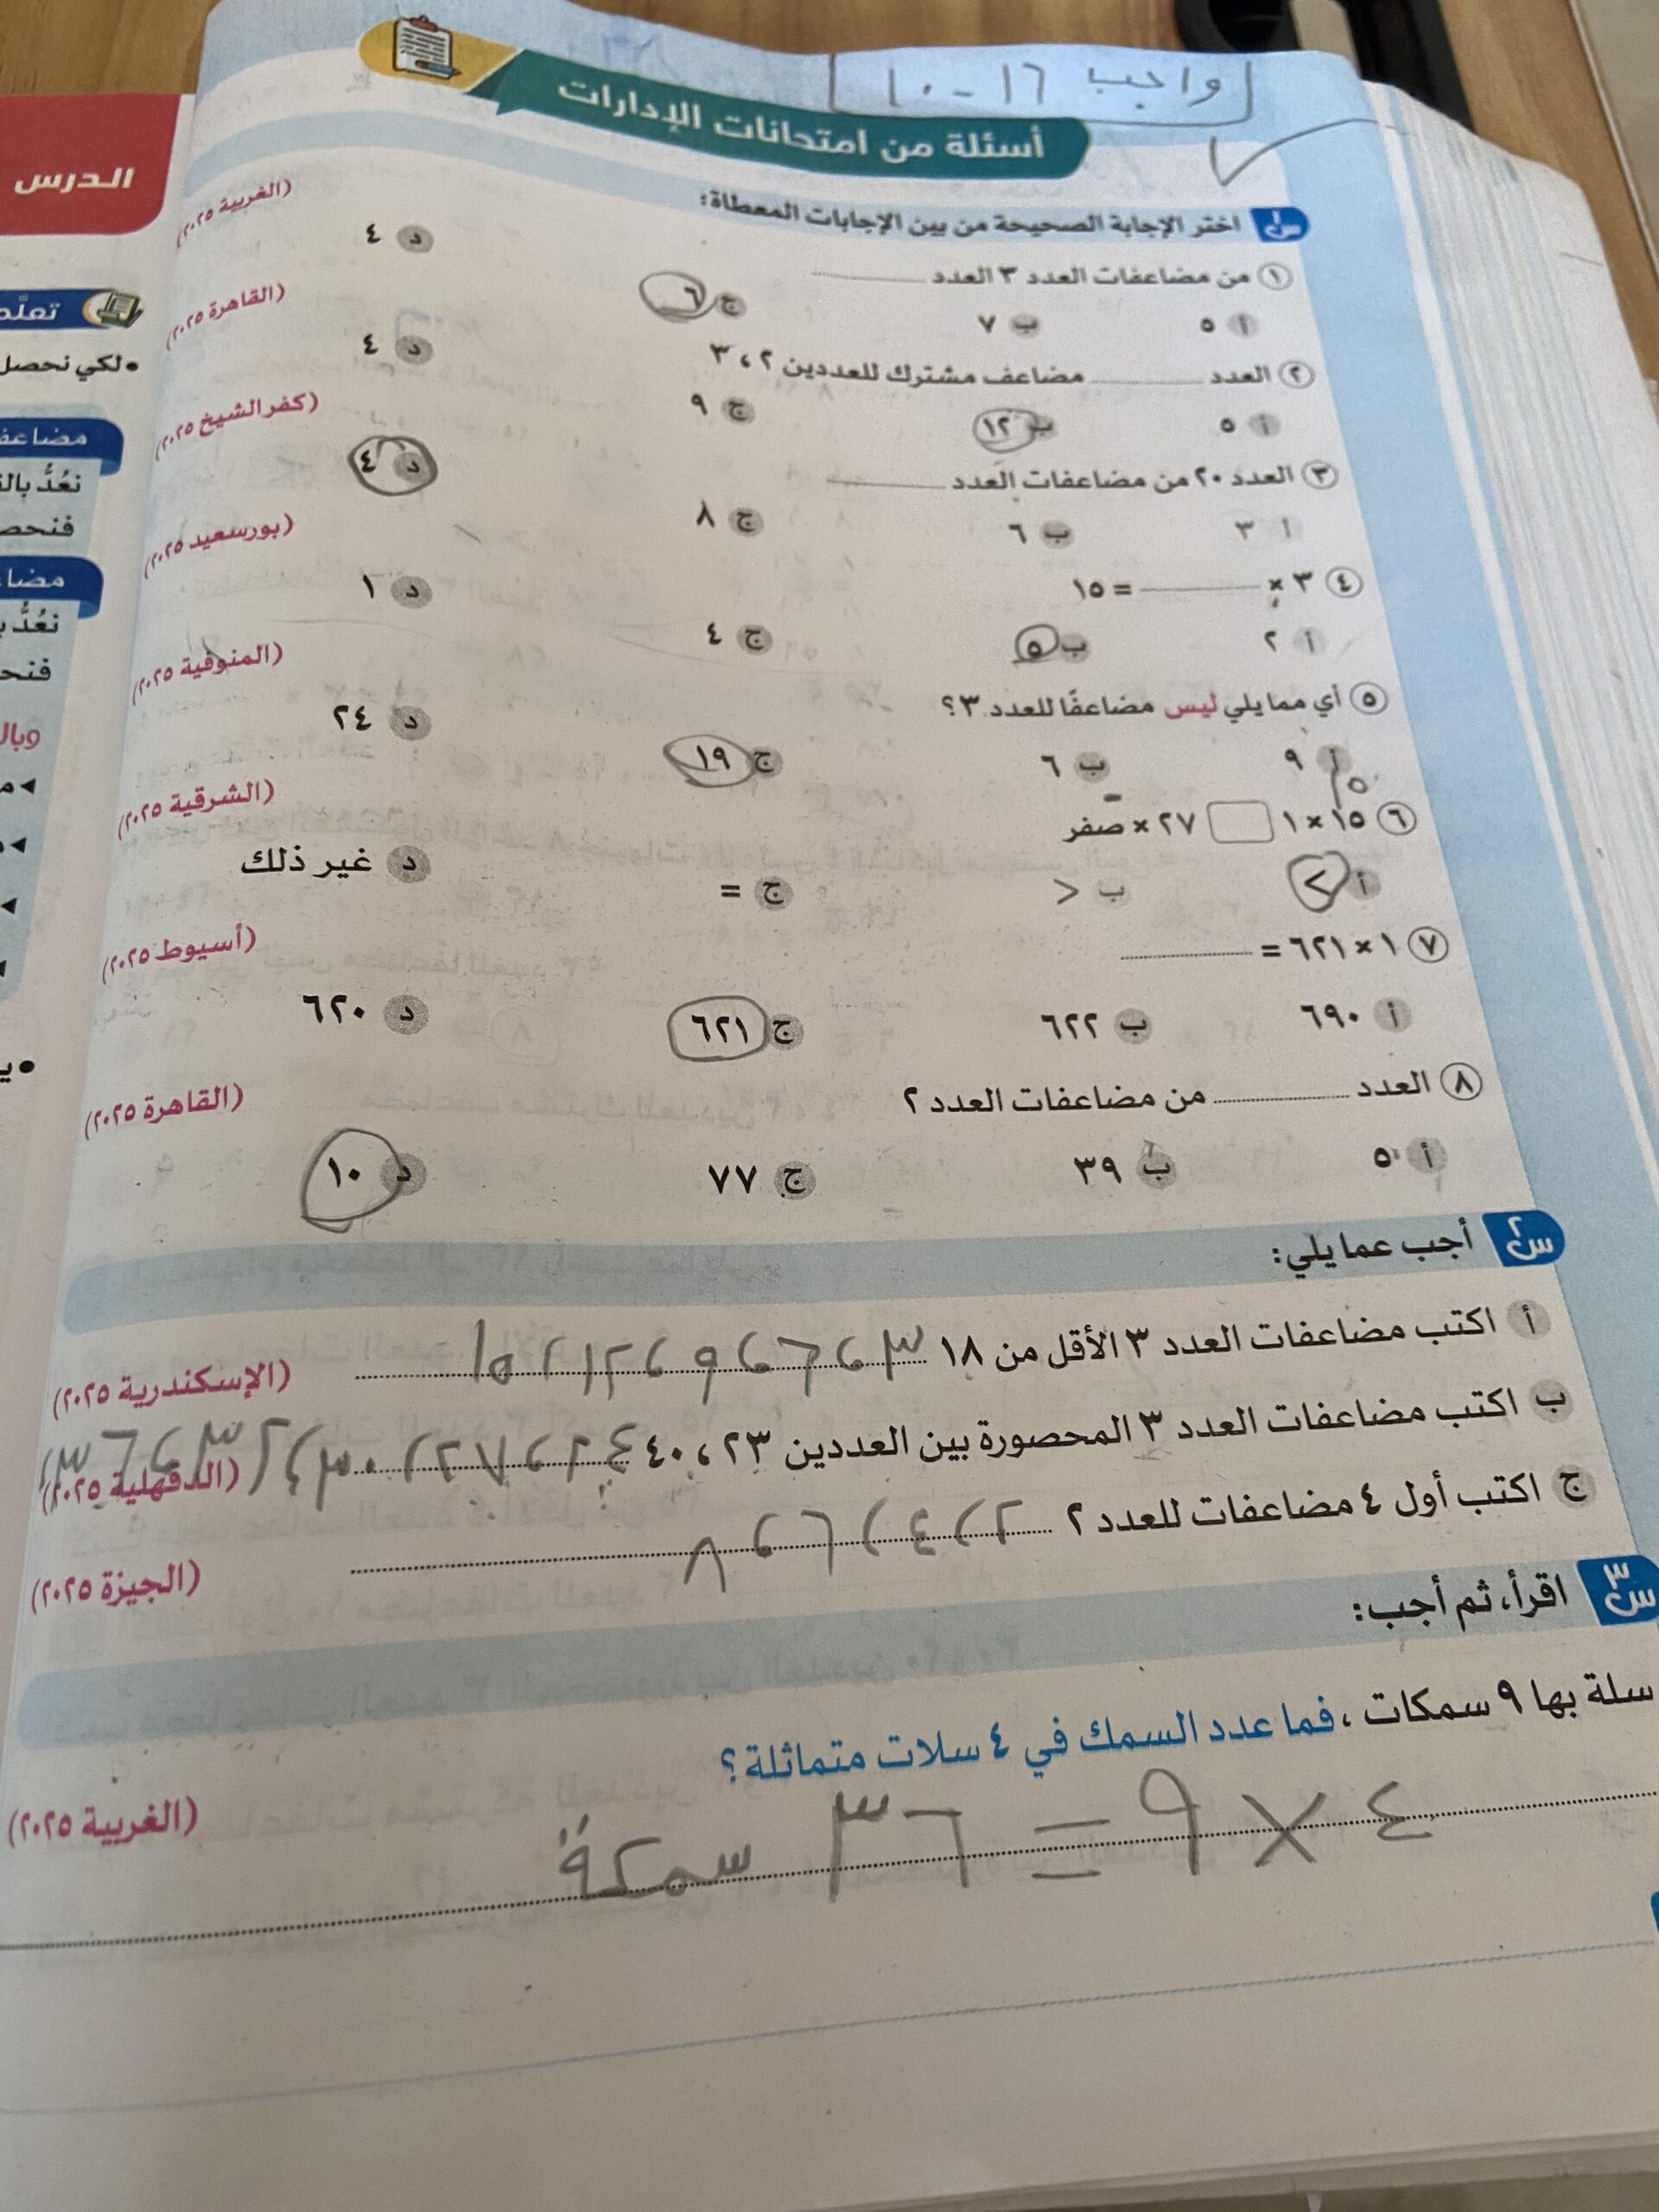 واجب ١٦ - ١٠
أسئلة من امتحانات الإدارات
س١ اختر الإجابة الصحيحة من بين الإجابات المعطاة:
١ من مضاعفات العدد ٣ العدد (الغربية ٢٠٢٥)
أ ٥ ب ٧ ج ٦ د ٤
٢ العدد مضاعف مشترك للعددين ٢ ، ٣ (القاهرة ٢٠٢٥)
أ ٥ ب ١٢ ج ٩ د ٤
٣ العدد ٢٠ من مضاعفات العدد (كفر الشيخ ٢٠٢٥)
أ ٣ ب ٦ ج ٨ د ٤
٤ ٣ × = ١٥ (بورسعيد ٢٠٢٥)
أ ٢ ب ٥ ج ٤ د ١
٥ أي مما يلي ليس مضاعفًا للعدد ٣؟ (المنوفية ٢٠٢٥)
أ ٩ ب ٦ ج ١٩ د ٢٤
٦ ١٥ × ١ ٢٧ × صفر (الشرقية ٢٠٢٥)
أ > ب < ج = د غير ذلك
٧ ١ × ٦٢١ = (أسيوط ٢٠٢٥)
أ ٦٩٠ ب ٦٢٢ ج ٦٢١ د ٦٢٠
٨ العدد من مضاعفات العدد ٢ (القاهرة ٢٠٢٥)
أ ٥ ب ٣٩ ج ٧٧ د ١٠
س٢ أجب عما يلي:
أ اكتب مضاعفات العدد ٣ الأقل من ١٨ ٣ ، ٦ ، ٩ ، ١٢ ، ١٥ (الإسكندرية ٢٠٢٥)
ب اكتب مضاعفات العدد ٣ المحصورة بين العددين ٢٣ ، ٤٠ ٢٤ ، ٢٧ ، ٣٠ ، ٣٣ ، ٣٦ ، (الدقهلية ٢٠٢٥)
ج اكتب أول ٤ مضاعفات للعدد ٢ ٢ ، ٤ ، ٦ ، ٨ (الجيزة ٢٠٢٥)
س٣ اقرأ، ثم أجب:
سلة بها ٩ سمكات ، فما عدد السمك في ٤ سلات متماثلة؟
٤ × ٩ = ٣٦ سمكة (الغربية ٢٠٢٥)
الدرس
لكي نحصل